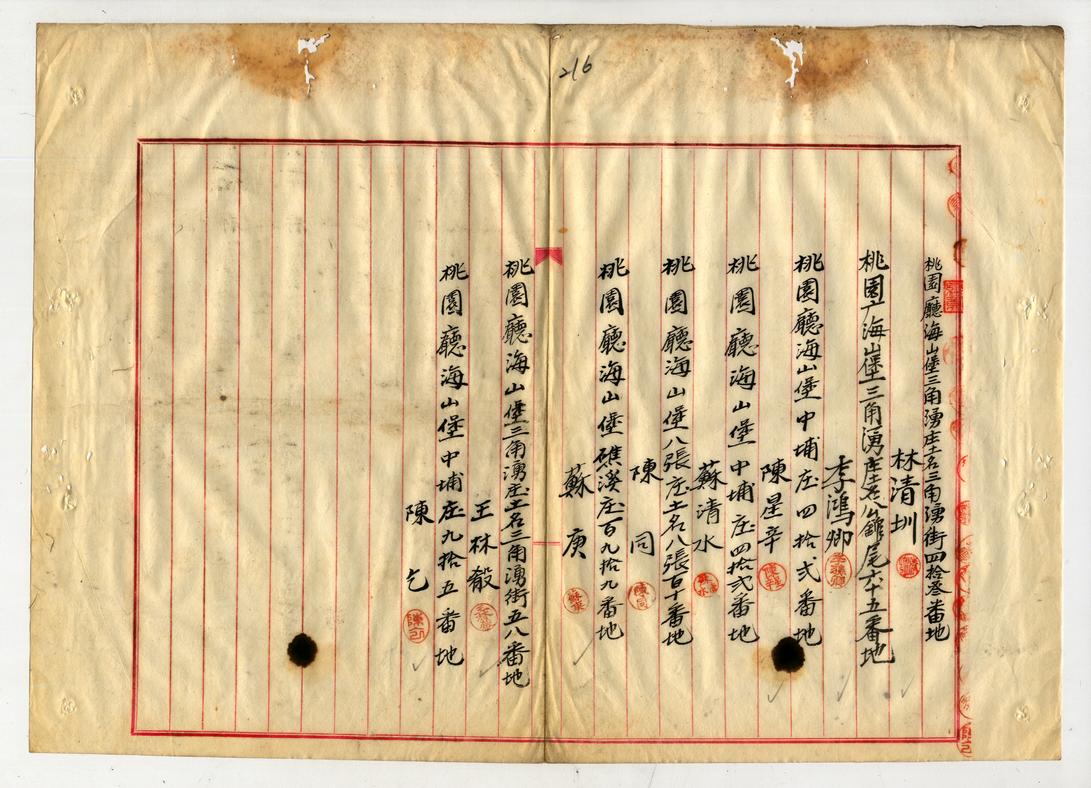 216
桃園廳海山堡三角湧庄土名三角湧街四拾叁番地
林清圳
桃園广海山堡三角湧庄土名公館尾六十五番地
李鴻卿
桃園廳海山堡中埔庄四拾弍番地
陳星辛
桃園廳海山堡中埔庄四拾弍番地
蘇清水
桃園廳海山堡八張庄土名八張百十番地
陳同
桃園廳海山堡礁溪庄百九拾九番地
蘇庚
桃園廳海山堡三角湧庄土名三角湧街五八番地
王林
桃園廳海山堡中埔庄九拾五番地
陳乞